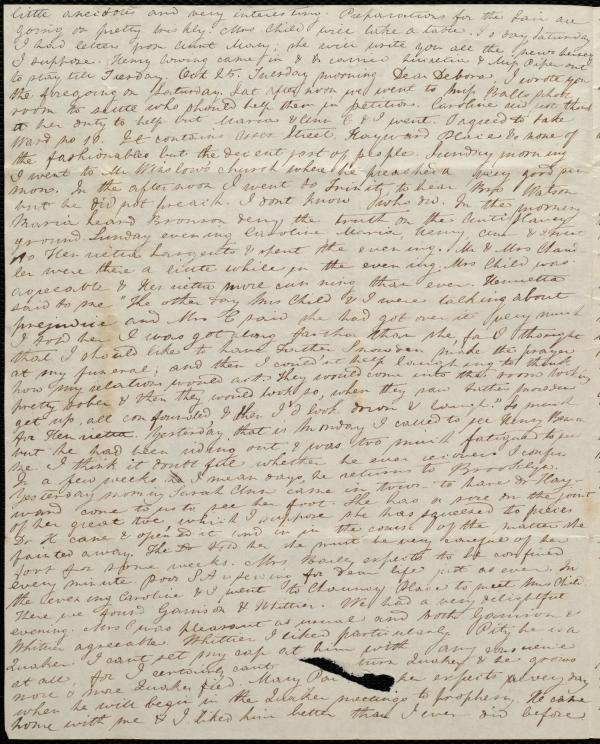 little anecdotes and very interesting. Preparations for the Fair are
going on pretty briskly. Mrs Child will take a table. To day Saturday
I had letters from Aunt Mary; she will write you all the news herself
I suppose. Henry came in & carried Lucretia & Miss Piper out
to stay till Tuesday. Oct 25. Tuesday morning Dear Debora, I wrote you
the foregoing on Saturday. Sat afternoon we went to Miss Balls school
room to see who should help them in petitions. Caroline did not think
it her duty to help but Maria & Ann C & I went. I agreed to take
Ward no 10. It contains Essex Street, Hayward Place & none of
the fashionables but the decent sort of people. Sunday morning
I went to Mr Winslows church where he preached a very good ser
mon. In the afternoon I went to Trinity to hear Bro Watson
but he did not preach. I dont know who did. In the morning
Maria heard Bronson deny the truth on the Anti Slavery
ground. Sunday evening Caroline Maria, Henry Ann & I went
to Henrietta Sargents & spent the evening. Mr & Mrs Chan
ler were there a little while in the evening. Mrs Child was
agreeable & Henrietta more cunning than ever. Henrietta
said to me "The other day Mrs Child & I were talking about
prejudice and Mrs C said she had got over it very much
I told her I was got along farther than she, for I thought
that I should like to have Father Snowden make the prayer
at my funeral; and then I could'nt help laughing to think
how my relations would act. They would come into the room looking
pretty sober & then they would look so, when they saw Father Snowden
get up, all confounded & then I'd look down & laugh." So much
for Henrietta. Yesterday that is Monday I called to see Henry Benson
but he had been riding out & was too much fatigued to see
me. I think it doubtful whether he ever recovers I suppose
In a few weeks I mean days, he returns to Brooklyn.
Yesterday morning Sarah Ann came in town to have Dr Hay-
ward come to us to see her foot. She has a sore on the joint
of her great toe, which I suppose she has squeezed to pieces
Dr H came & opened it and in the course of the matter she
fainted away. The Dr told her she must be very careful of her
foot for some weeks. Mrs Baily expects to be confined
every minute. Poor S A is sewing for dear life just as ever. In
the evening Caroline & I went to Chauncy Place to meet Mrs Child
There we found Garrison & Whittier. We had a very delightful
evening. Mrs C was pleasant as usual and both Garrison &
Whittier agreeable. Whittier I liked particularly. Pity he is a
Quaker. I cant set my cap at him with any
at all, for I certainly cant turn Quaker & he grows
more & more Quaker fied. Mary Par her expects every day
when he will begin in the Quaker meetings to prophesy. He came
home with me & I liked him better than I ever did before